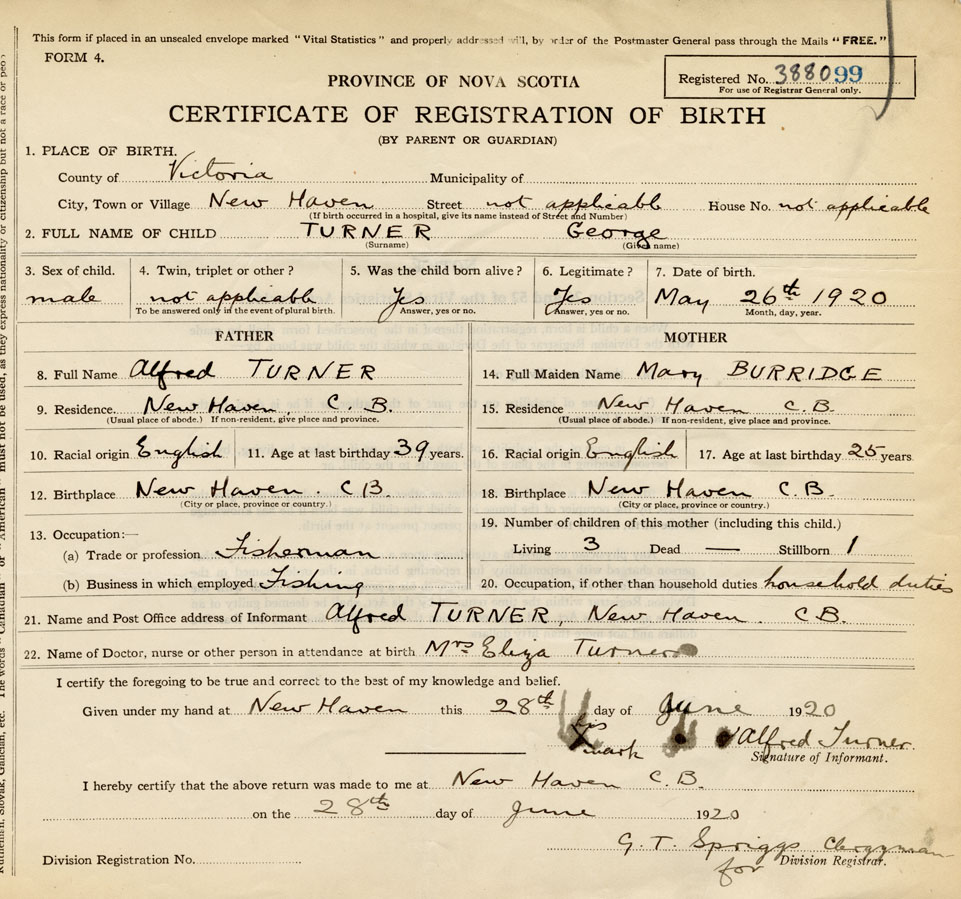 This form if placed in an unsealed envelope marked "Vital Statistics" and properly addressed will, by order of the Postmaster General pass through the Mails "FREE."
FORM 4.
PROVINCE OF NOVA SCOTIA
Registered No. 388099
For use of Registrar General only.
CERTIFICATE OF REGISTRATION OF BIRTH
(BY PARENT OR GUARDIAN)
1. PLACE OF BIRTH.
County of Victoria Municipality of
City, Town or Village New Haven Street not applicable House No. not applicable
(If birth occurred in a hospital, give its name instead of Street and Number)
2. FULL NAME OF CHILD TURNER George
(Surname) (Given name)
3. Sex of child. 4. Twin, triplet or other? 5. Was the child born alive? 6. Legitimate? 7. Date of birth.
male not applicable Yes Yes May 26th 1920
To be answered only in the event of plural birth. Answer, yes or no. Answer, yes or no. Month, day, year.
FATHER MOTHER
8. Full Name Alfred TURNER 14. Full Maiden Name Mary BURRIDGE
9. Residence. New Haven, C.B. 15. Residence New Haven C.B.
(Usual place of abode.) If non-resident, give place and province. (Usual place of abode.) If non-resident, give place and province.
10. Racial origin English 11. Age at last birthday 39 years. 16. Racial origin English 17. Age at last birthday 25 years
12. Birthplace New Haven. C B. 18. Birthplace New Haven C.B.
(City or place, province or country.) (City or place, province or country.)
19. Number of children of this mother (including this child.)
13. Occupation:—
(a) Trade or profession Fisherman Living 3 Dead — Stillborn 1
(b) Business in which employed Fishing 20. Occupation, if other than household duties household duties
21. Name and Post Office address of Informant Alfred TURNER, New Haven. C.B.
22. Name of Doctor, nurse or other person in attendance at birth Mrs Eliza Turner
I certify the foregoing to be true and correct to the best of my knowledge and belief.
Given under my hand at New Haven this 28th day of June 1920
his X mark Alfred Turner.
Signature of Informant.
I hereby certify that the above return was made to me at New Haven C.B.
on the 28th day of June 1920
G. T. Spriggs Clergyman
Division Registration No. for Division Registrar.
Ruthenian, Slovak, Galician, etc. The words "Canadian" or "American" must not be used, as they express nationality or citizenship but not a race or